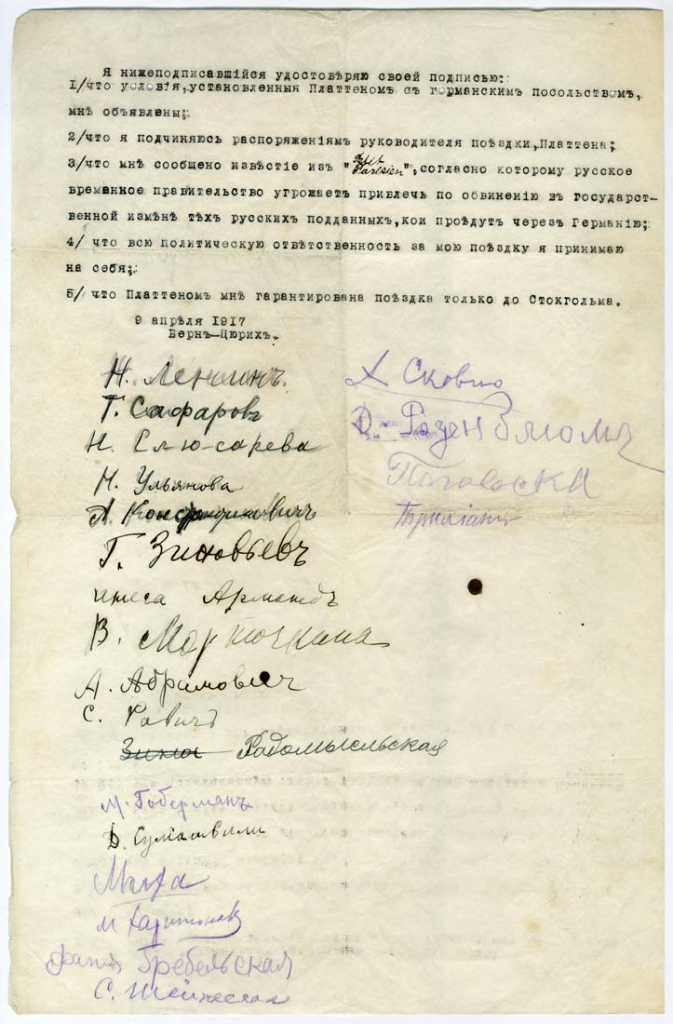 Я нижеподписавшiйся удостовѣряю своей подписью:
1/что условiя,установленныя Платтеномъ съ германскимъ посольствомъ,
мнѣ объявлены;
2/что я подчиняюсь распоряженiямъ руководителя поѣздки,Платтена;
3/что мнѣ сообщено извѣстiе изъ "Petit Parisien",согласно которому русское
временное правительство угрожаетъ привлечь по обвиненiю въ государст-
венной измѣнѣ тѣхъ русскихъ подданныхъ,кои проѣдутъ черезъ Германiю;
4/ что всю политическую отвѣтственность за мою поѣздку я принимаю
на себя;
5/ что Платтеномъ мнѣ гарантирована поѣздка только до Стокгольма.
9 апрѣля 1917
Бернъ-Цюрихъ.
Н. Ленинъ.
Г. Сафаровъ
Н. Слюсарева
Н. Ульянова
А. Константиновичъ
Г. Зиновьевъ
инеса Армандъ
В. Марточкина
А. Абрамовичъ
С. Равичъ
Радомысльская
М. Гоберманъ
Д. Сулiашвили
М Харитоновъ
Гребельская
С.
Х Сковно
Д. Розенблюмъ